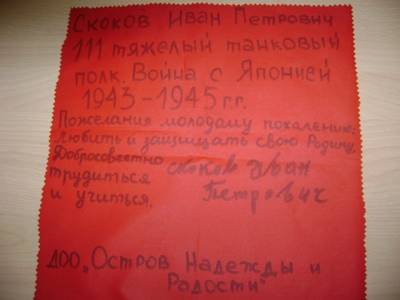 Скоков Иван Петрович
111 тяжелый танковый
полк. Война с Японией
1943-1945 г.г.
Пожелания молодому поколению:
любить и защищать свою Родину.
Добросовестно
трудиться
и учиться.
Скоков Иван
Петрович
ДОО „Остров Надежды и
Радости"